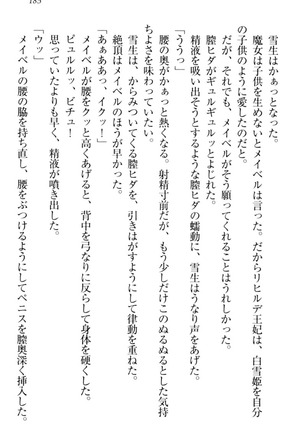 185
雪生はかぁっとなった。
魔女は子供を生めないとメイベルは言った。だからリヒルデ王妃は、白雪姫を自分
の子供のように愛したのだと。
だが、それでも、メイベルがそう願ってくれることはうれしかった。
膣ヒダがギュルギュルッとよじれた。
精液を吸い出そうとするような膣ヒダの蠕動に、雪生はうなり声をあげた。
「ううっ」
腰の奥がかぁっと熱くなる。射精寸前だが、もう少しだけこのぬるぬるとした気持
ちよさを味わっていたい。
雪生は、からみついてくる膣ヒダを、引きはがすようにして律動を重ねた。
絶頂はメイベルのほうが早かった。
「あぁあぁっ、イクッ!」
メイベルが腰をクッと高くあげると、背中を弓なりに反らして身体を硬くした。
ビュルルッ、ビチュ!
思っていたよりも早く、精液が噴き出した。
「ウッ」
メイベルの腰の脇を持ち直し、腰をぶつけるようにしてペニスを膣奥深く挿入した。